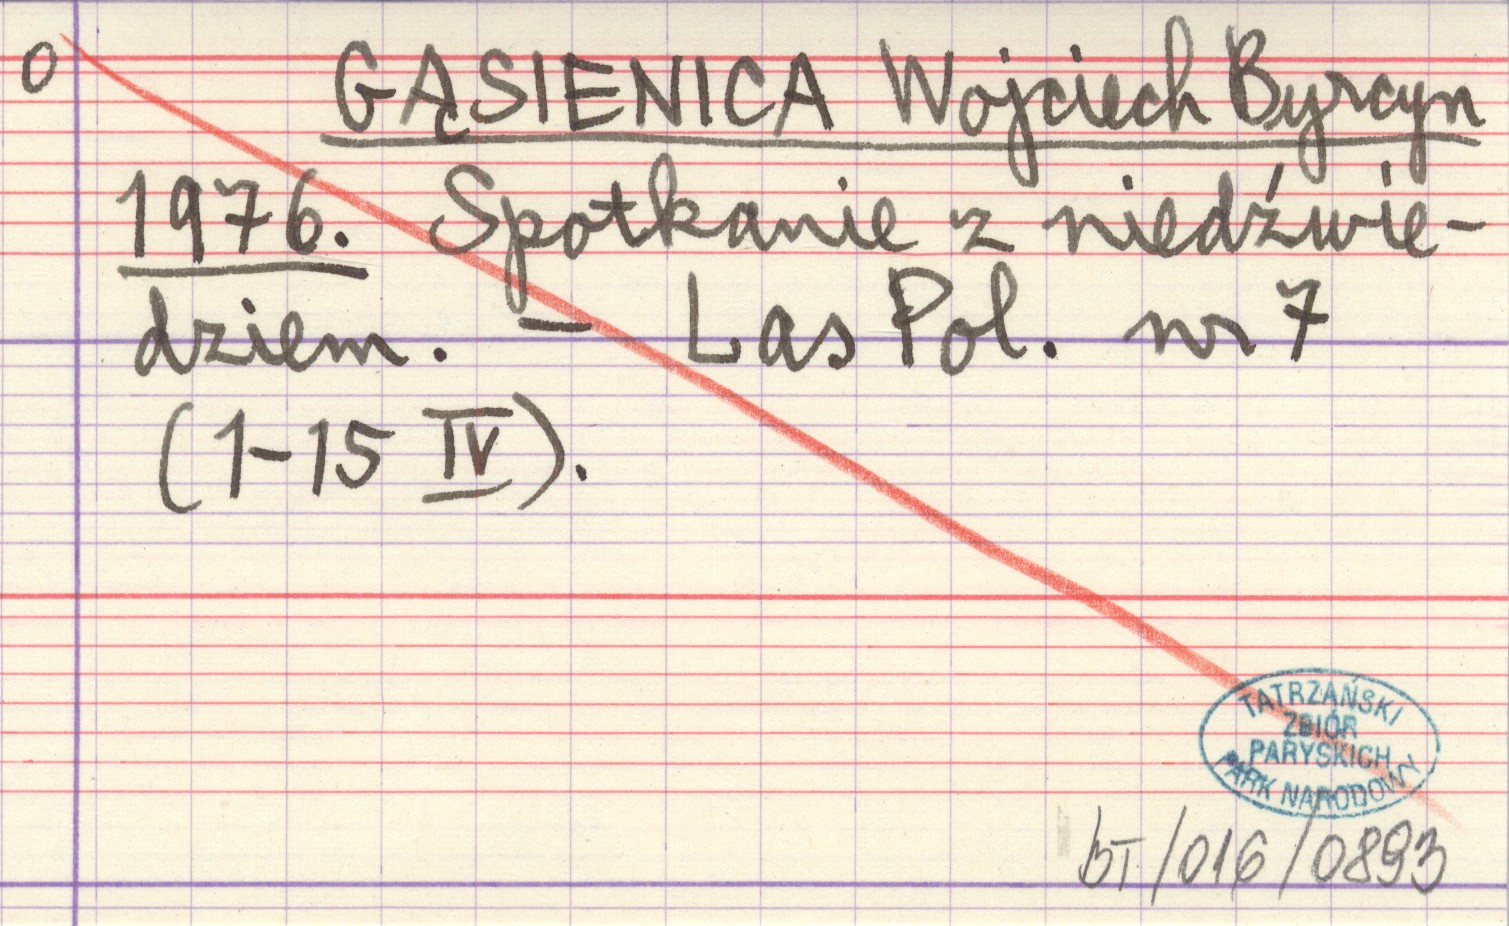 O GĄSIENICA Wojciech Byrcyn
1976. Spotkanie z niedźwie-
dziem. - Las Pol. nr 7
(1-15 IV).
TATRZAŃSKI
ZBIÓR
PARYSKICH
PARK NARODOWY
BT/016/0893